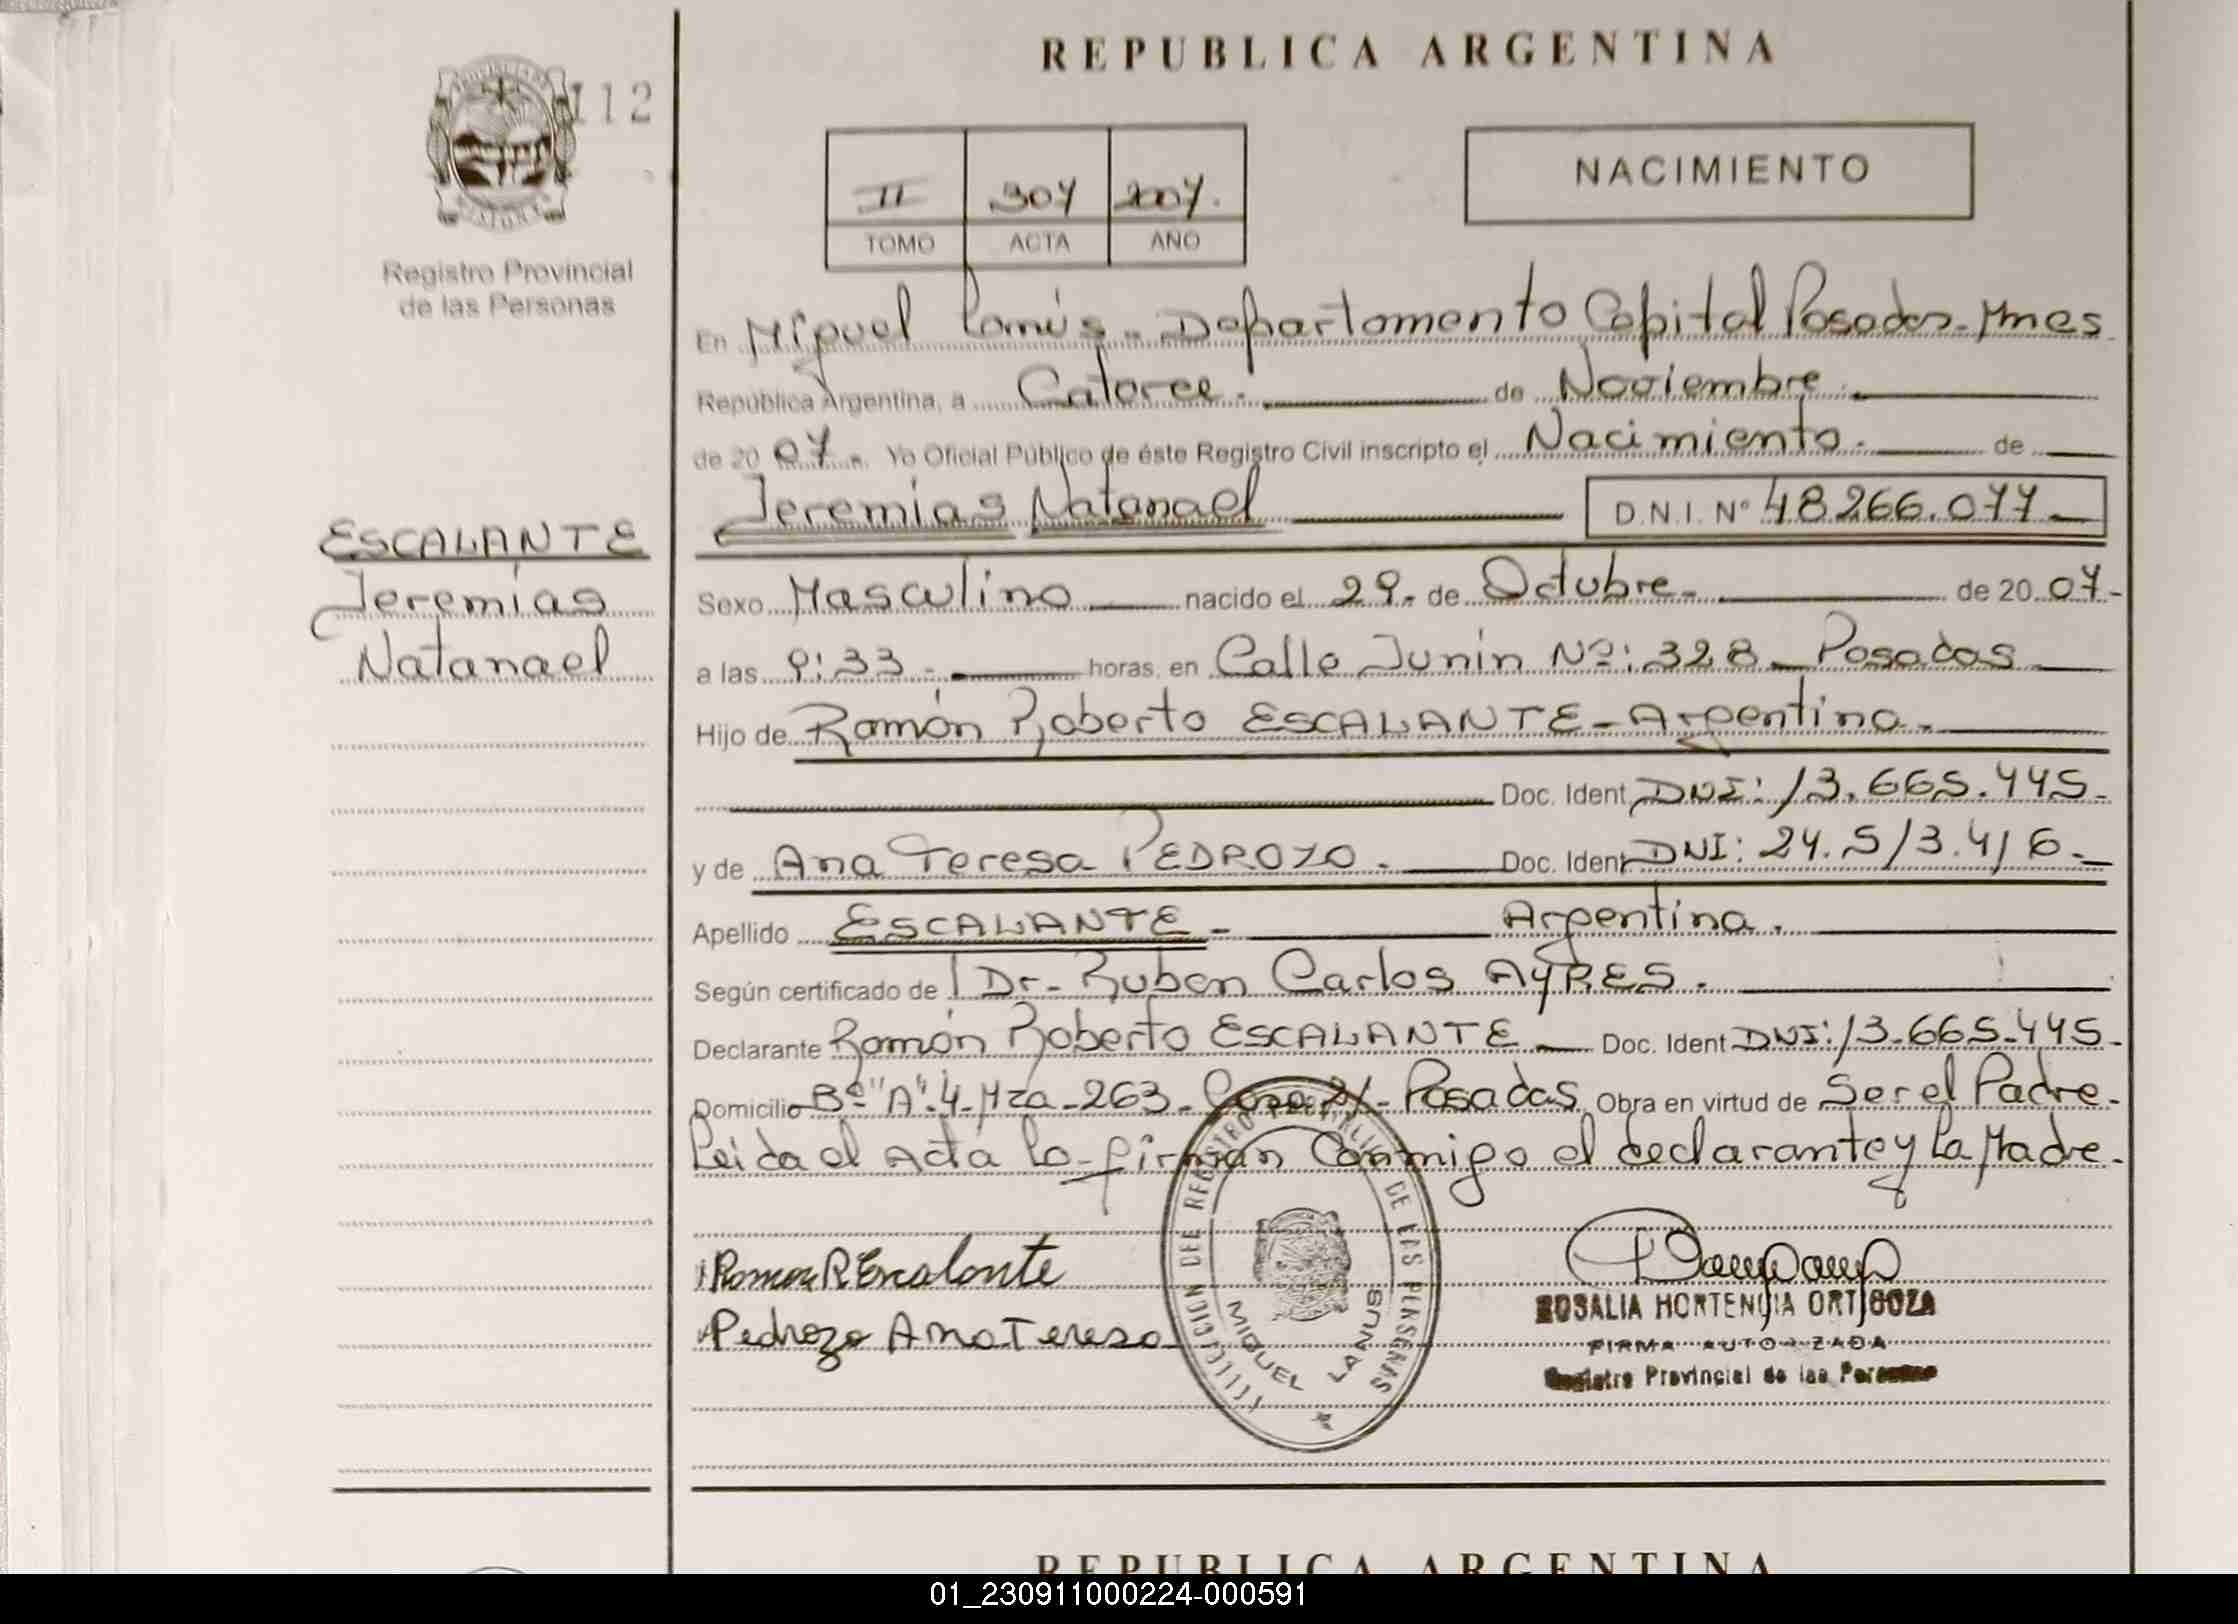 REPUBLICA ARGENTINA
112
II 307 2007.
TOMO ACTA AÑO
NACIMIENTO
Registro Provincial
de las Personas
En Miguel Lanús - Departamento Capital Posadas - Mnes
República Argentina, a Catorce. de Noviembre.
de 20 07. Yo Oficial Público de éste Registro Civil inscripto el Nacimiento. de
Jeremías Natanael D.N.I. Nº 48.266.077
ESCALANTE
Jeremías
Natanael
Sexo Masculino nacido el 29. de Octubre. de 20 07.
a las 9:33. horas, en Calle Junín Nº: 328 Posadas
Hijo de Ramón Roberto ESCALANTE - Argentino.
Doc. Ident DNI: 13.665.445.
y de Ana Teresa PEDROZO. Doc. Ident DNI: 24.513.416.
Apellido ESCALANTE - Argentina.
Según certificado de Dr. Ruben Carlos AYRES.
Declarante Ramón Roberto ESCALANTE Doc. Ident DNI: 13.665.445.
Domicilio Bº "A".4-Mza-263-Casa 21-Posadas Obra en virtud de Ser el Padre.
Leida el Acta la firman Conmigo el declarante y la Madre.
Ramon R Escalante
Pedrozo Ana Teresa
DEL REGISTRO DE LAS PERSONAS
MIGUEL LANUS
ROSALIA HORTENCIA ORTIGOZA
FIRMA AUTORIZADA
Registro Provincial de las Personas
REPUBLICA ARGENTINA
01_230911000224-000591